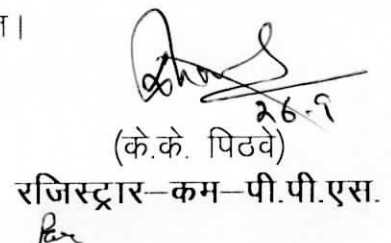 26.9
(के.के. पिठवे)
रजिस्ट्रार–कम–पी.पी.एस.